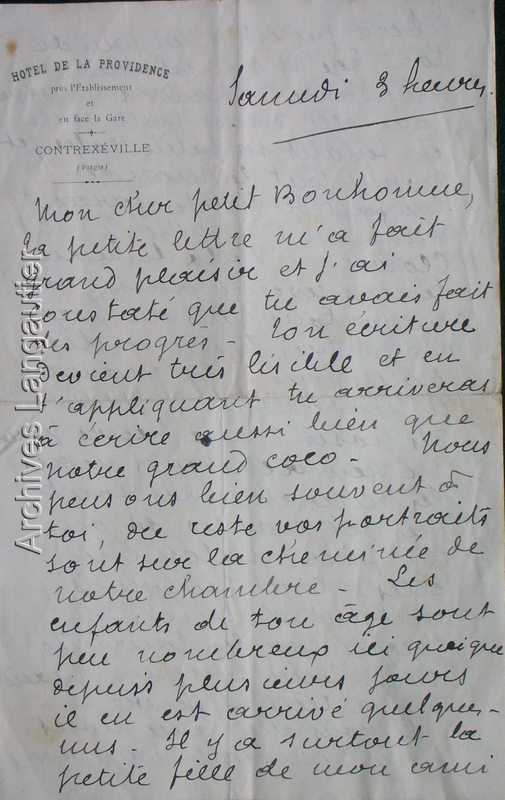 HOTEL DE LA PROVIDENCE
près l'Établissement
et
en face la Gare
CONTREXÉVILLE
(Vosges)
Samedi 3 heures.
Mon cher petit Bonhomme,
Ta petite lettre m'a fait
grand plaisir et j'ai
constaté que tu avais fait
des progrès - Ton écriture
devient très lisible et en
t'appliquant tu arriveras
à écrire aussi bien que
notre grand coco - Nous
pensons bien souvent à
toi, du reste vos portraits
sont sur la cheminée de
notre chambre - Les
enfants de ton âge sont
peu nombreux ici quoique
depuis plusieurs jours
il en est arrivé quelques-
uns - Il y a surtout la
petite fille de mon ami
Archives Langautier